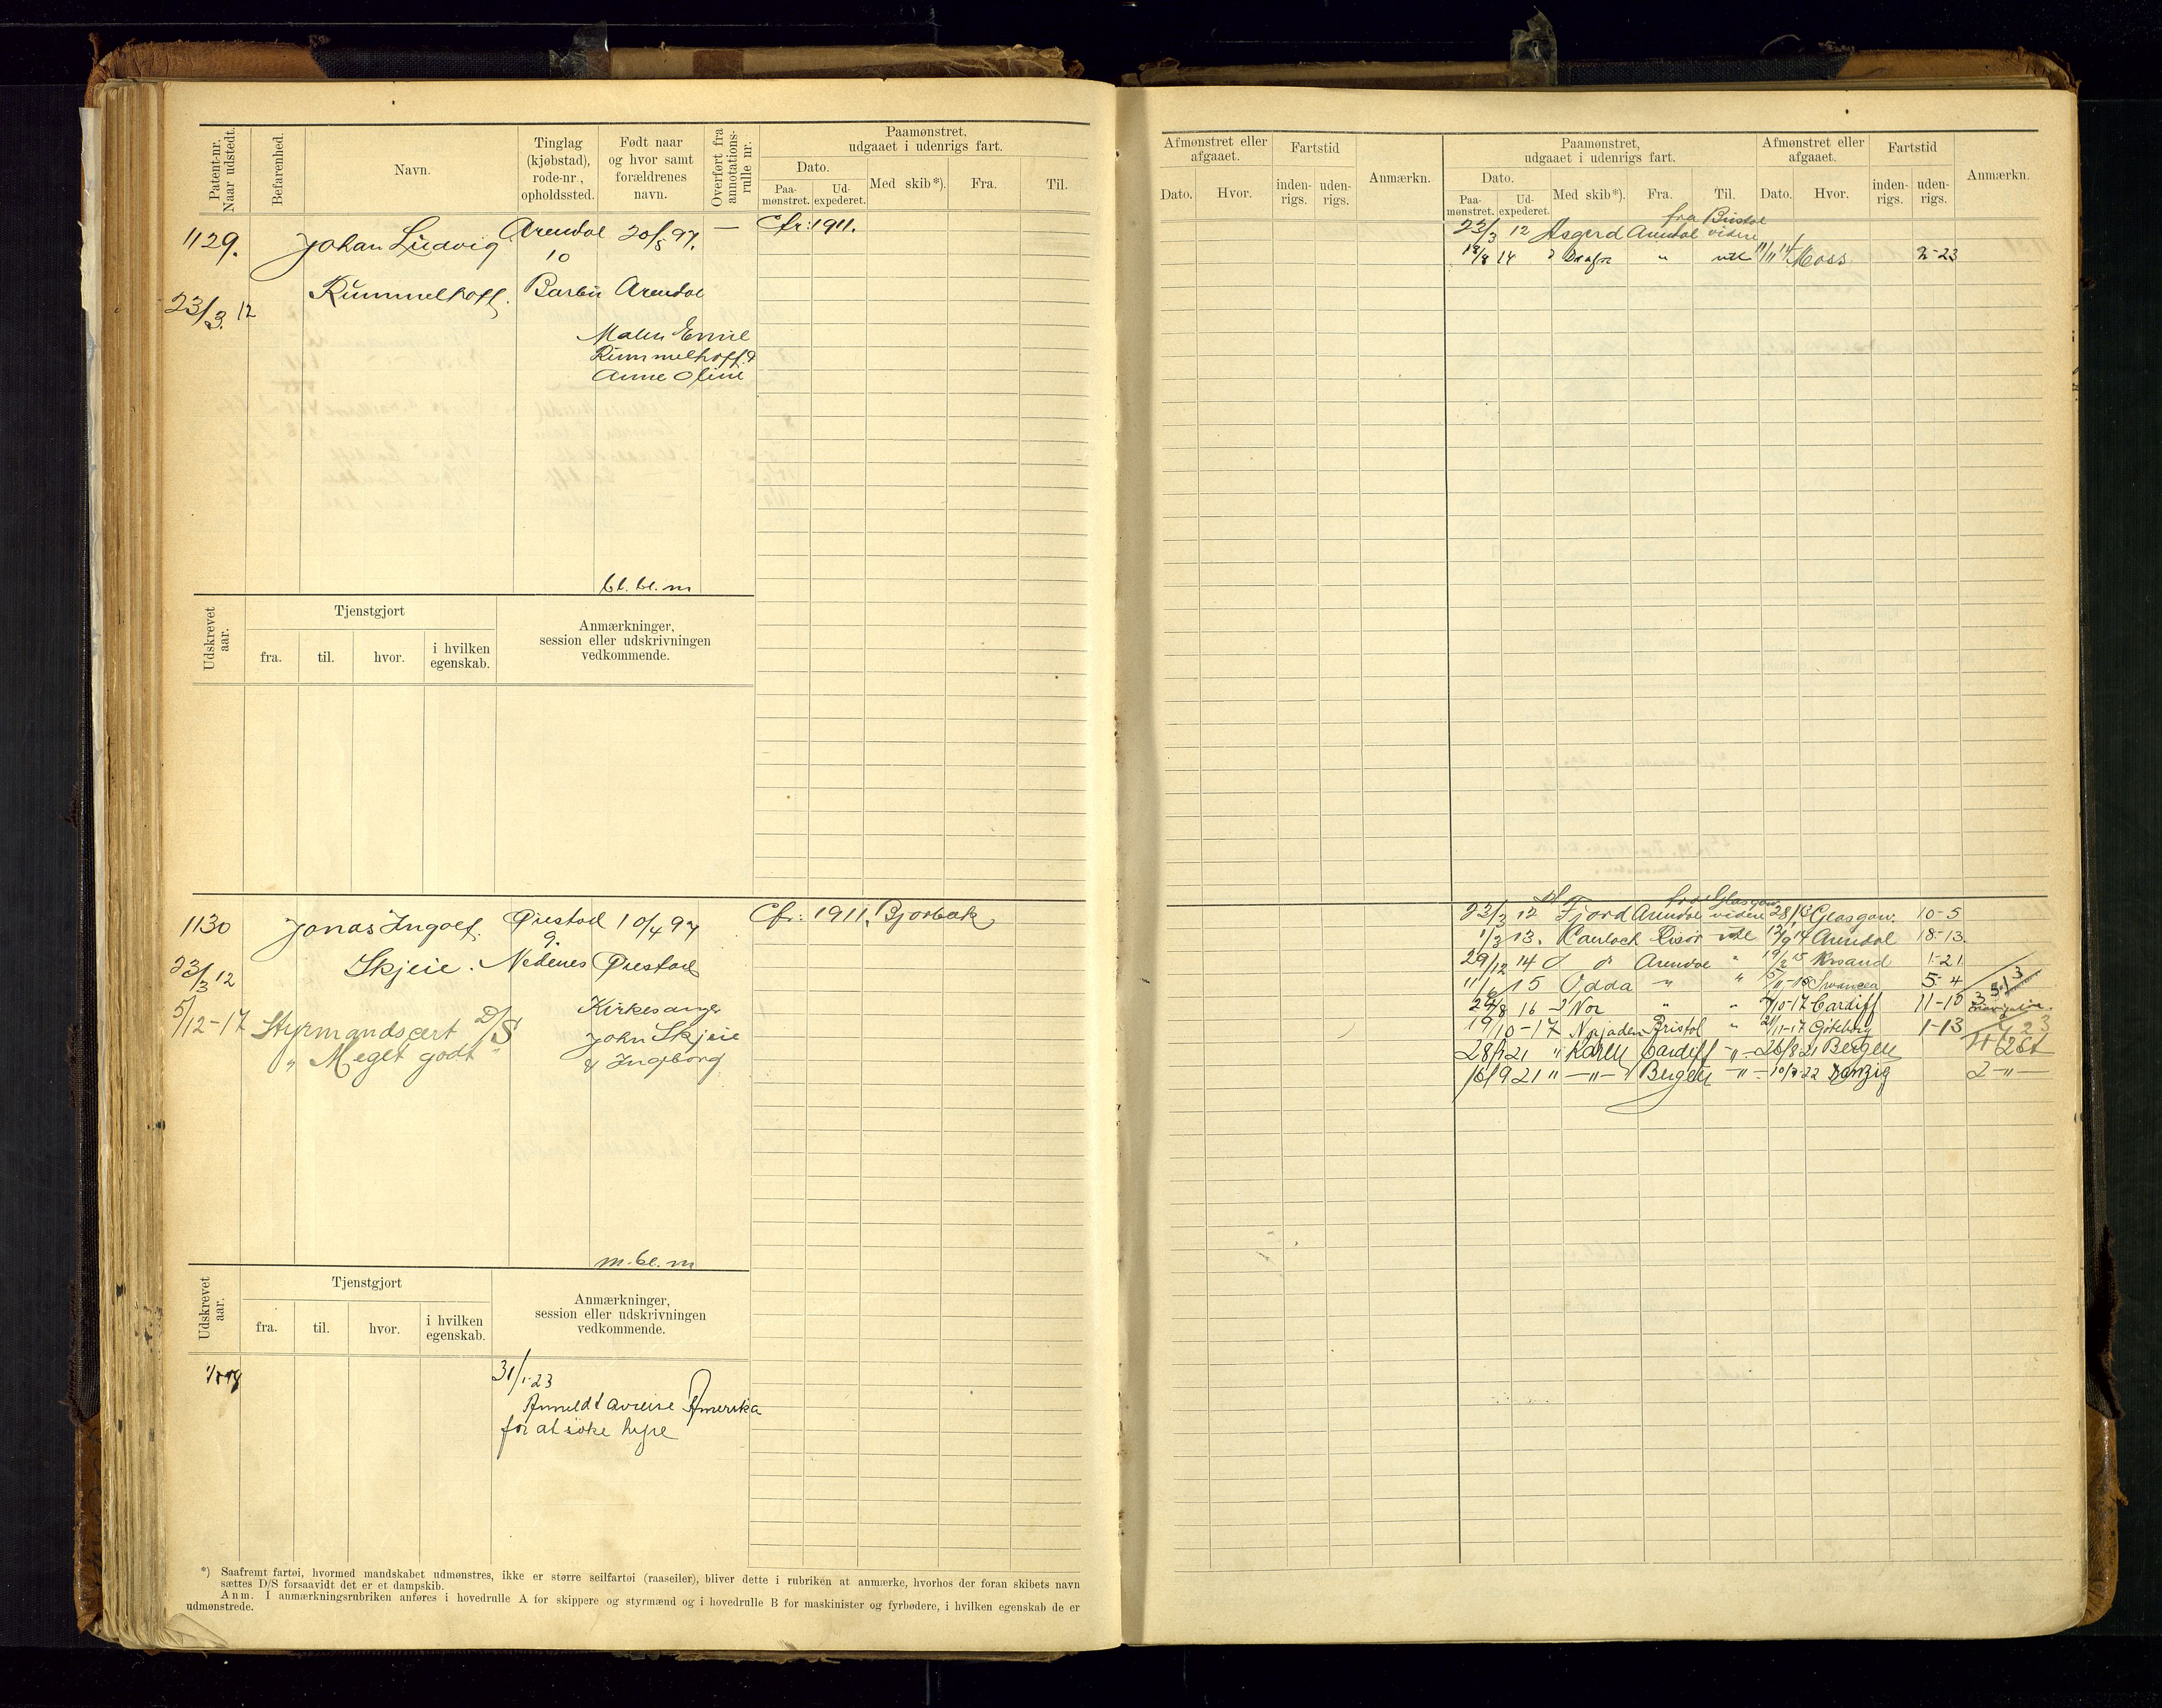 Patent-nr. Naar udstedt.
Befarenhed.
Navn.
Tinglag (kjøbstad), rode-nr., opholdssted.
Født naar og hvor samt forældrenes navn.
Overført fra annotations-rulle nr.
Paamønstret, udgaaet i udenrigs fart.
Dato.
Paa-mønstret.
Ud-expederet.
Med skib*).
Fra.
Til.
1129. Johan Ludvig Arendal 20/5 97. — Cfr: 1911.
10
23/3. 12 Rummelhoff. Barbu Arendal
Emil
Rummelhoff &
Anne Oline
bl. bl. m
Udskrevet aar.
Tjenstgjort
fra. til. hvor. i hvilken egenskab.
Anmærkninger, session eller udskrivningen vedkommende.
1130 Jonas Ingolf. Øiestad 10/4 97 Cfr: 1911. Bjorbæk
9.
23/3 12 Skjeie. Nedenes Øiestad
Kirkesanger
5/12-17 Styrmandscert D/S John Skjeie
" Meget godt " & Ingeborg
m. bl. m
Udskrevet aar.
Tjenstgjort
fra. til. hvor. i hvilken egenskab.
Anmærkninger, session eller udskrivningen vedkommende.
31/1-23
Anmeldt avreise Amerika
for at søke hyre
*) Saafremt fartøi, hvormed mandskabet udmønstres, ikke er større seilfartøi (raaseiler), bliver dette i rubriken at anmærke, hvorhos der foran skibets navn
sættes D/S forsaavidt det er et dampskib.
Anm. I anmærkningsrubriken anføres i hovedrulle A for skippere og styrmænd og i hovedrulle B for maskinister og fyrbødere, i hvilken egenskab de er
udmønstrede.
Afmønstret eller afgaaet.
Dato. Hvor.
Fartstid
inden-rigs. uden-rigs.
Anmærkn.
Paamønstret, udgaaet i udenrigs fart.
Dato.
Paa-mønstret. Ud-expederet. Med skib*). Fra. Til.
Afmønstret eller afgaaet.
Dato. Hvor.
Fartstid
inden-rigs. uden-rigs.
Anmærkn.
fra Bristol
23/3 12 Asgerd Arendal videre
14 " Moss 2-23
fra Glasgow
23/3 12 Fjord Arendal videre Glasgow. 10-5
13. Risør Arendal 18-13.
29/12 14 Arendal " Krsand 1-21
15 Odda " " Swansea 5-4
16 Nor " " Cardiff 11-10
19/10-17 Najaden Bristol " Göteborg 1-13
21 " Karen Cardiff -"- 26/8 21 Bergen
16/9 21 " -"- Bergen -"- 22 Danzig 2 -"-